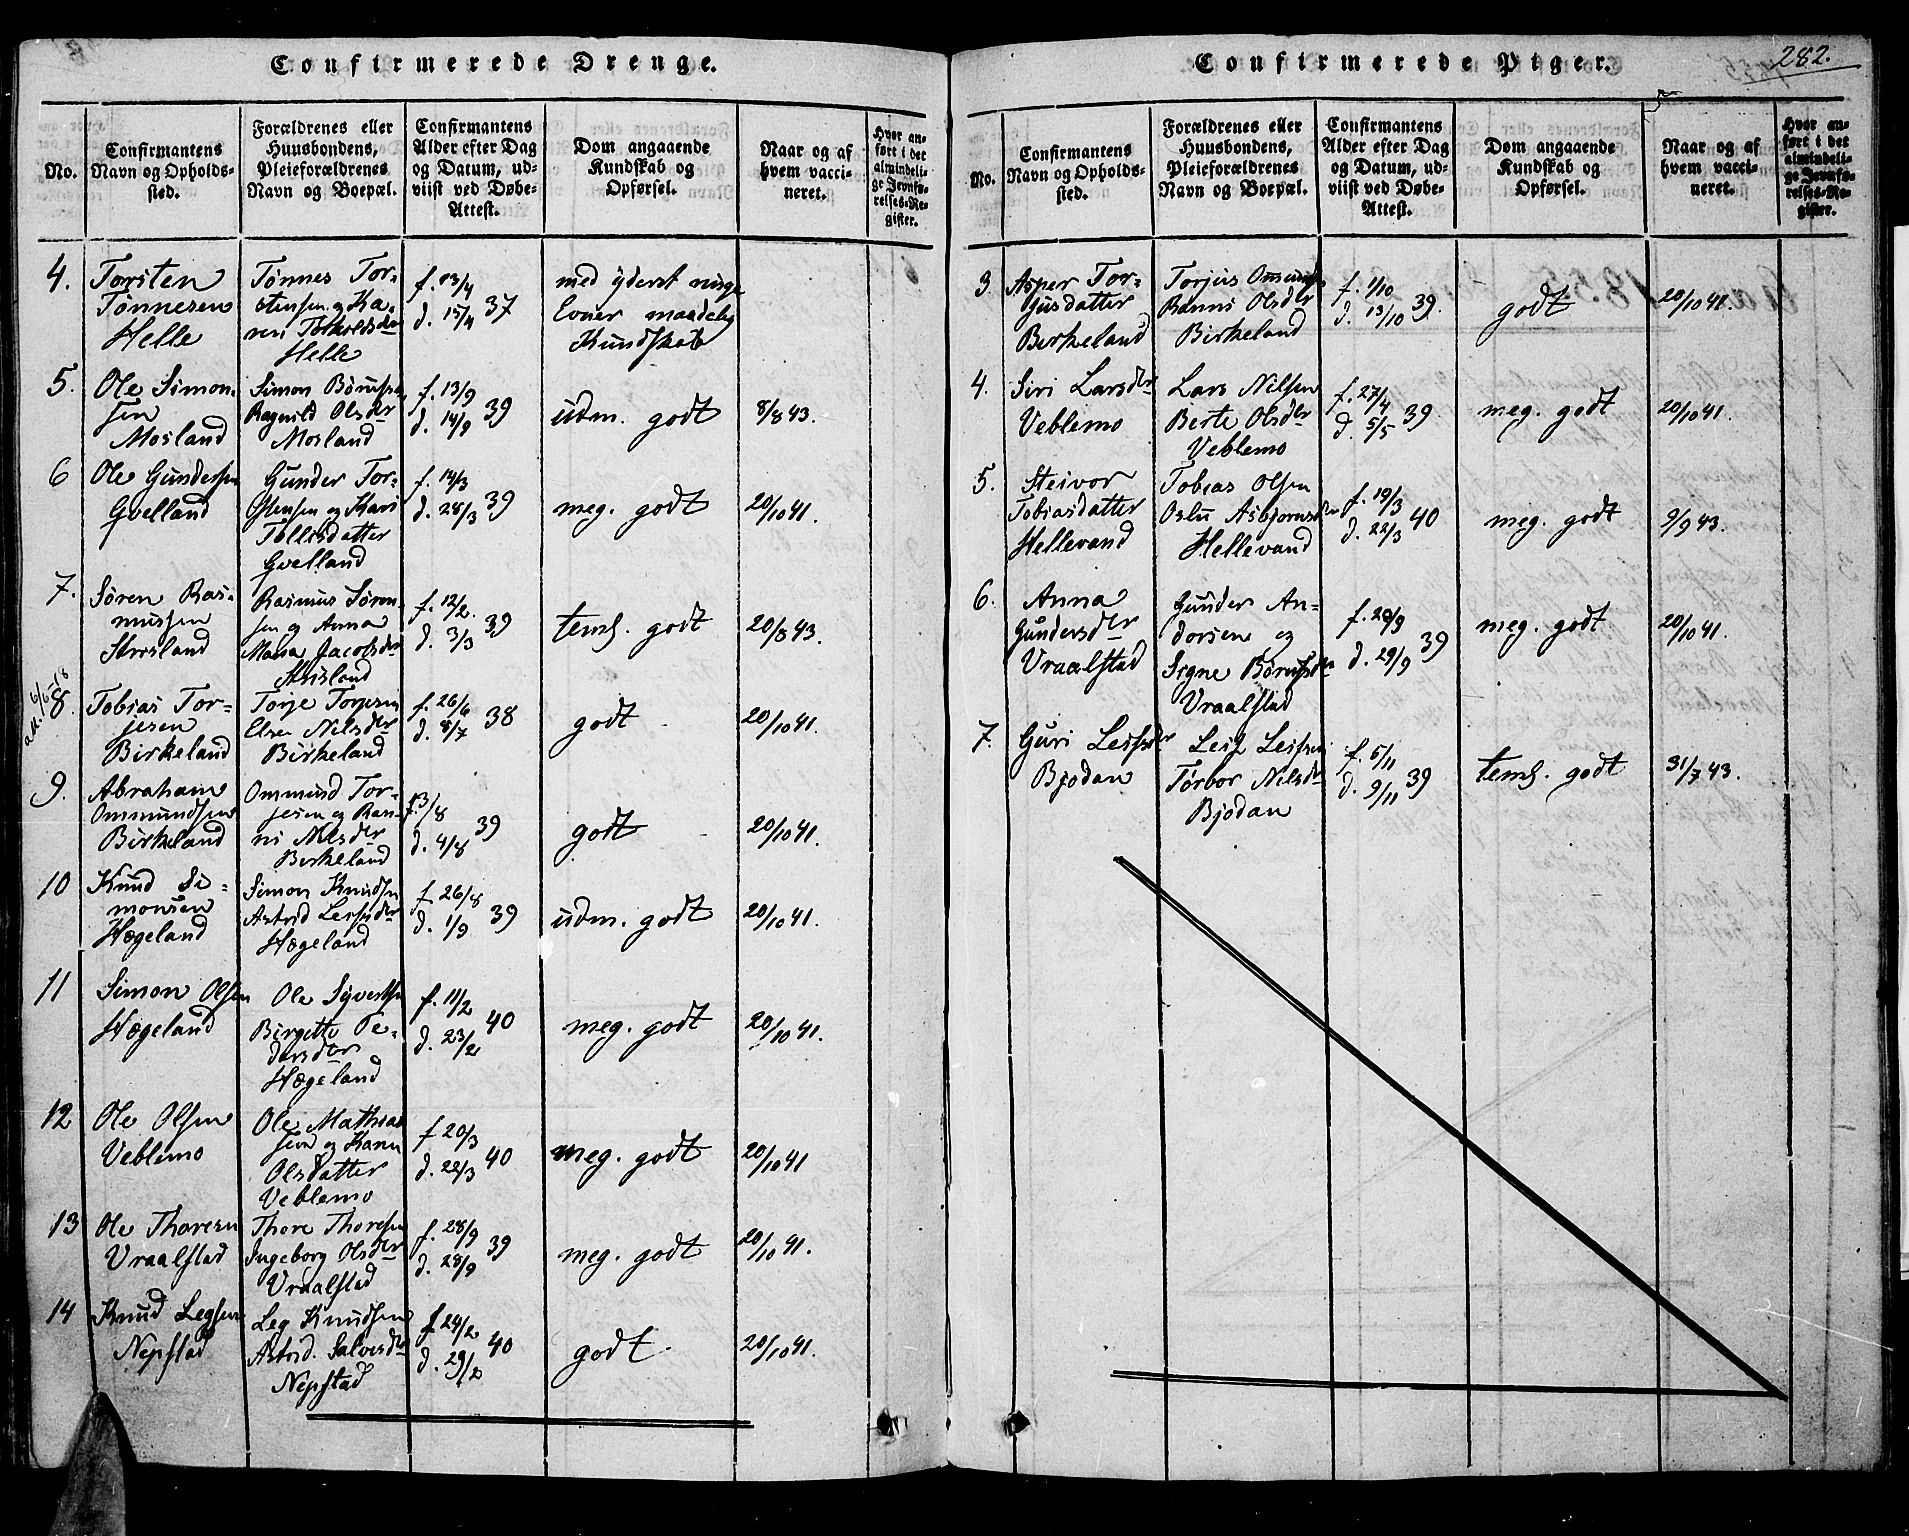 282.
Confirmerede Drenge.
No.
Confirmantens
Navn og Opholds-
sted.
Forældrenes eller
Huusbondens,
Pleieforældrenes
Navn og Boepæl.
Confirmantens
Alder efter Dag
og Datum, ud-
viist ved Døbe-
Attest.
Dom angaaende
Kundskab og
Opførsel.
Naar og af
hvem vacci-
neret.
Hvor an-
ført i det
almindeli-
ge Jevnfø-
relses-Re-
gister.
4.
Torsten
Tønnesen
Helle
Tønnes Tor-
stensen og Ka-
ren
Helle
f. 13/4
d. 15/4 37
med yderst ringe
maadelig
Kundskab
5.
Ole Simon-
sen
Mosland
Simon
Ragnild Olsder
Mosland
f. 13/9
d. 14/9 39
udm. godt
8/8 43.
6
Ole Gundersen
Gvelland
Gunder Tor-
stensen og Kari
Tollisdatter
Gvelland
f. 14/3
d. 28/3 39
meg. godt
20/10 41.
7.
Søren Ras-
mussen
Rasmus Søren-
sen og Anna
Maria Jacobsder
f. 12/2.
d. 3/3 39
teml. godt
20/8 43.
8.
Tobias Tor-
jesen
Birkeland
Torje Torjesen
Elsen Nilsder
Birkeland
f. 26/6
d. 8/7 38
godt
20/10 41.
9.
Abraham
Ommundsen
Birkeland
Ommund Tor-
jesen og Ran-
ni Nilsder
Birkeland
f. 3/8
d. 4/8 39
godt
20/10 41.
10
Knud Si-
monsen
Hægeland
Simon Knudsen
Astrid Leifsder
Hægeland
f 26/8
d. 1/9 39
udm. godt
20/10 41.
11
Simon Olsen
Hægeland
Ole Syvertsen
Birgitte Pe-
dersder
Hægeland
f. 11/2
d. 23/2 40
meg. godt
20/10 41.
12
Ole Olsen
Veblemo
Ole Mathias
sen og Karen
Olsdatter
Veblemo
f 20/3
d. 22/3 40
meg. godt
20/10 41
13
Ole Thoresen
Vraalstad
Thore Thoresen
Ingeborg Olsder
Vraalstad
f. 28/9
d. 28/9 39
meg. godt
20/10 41.
14
Knud Legsen
Nepstad
Leg Knudsen
Astrid. Salvesder
Nepstad
f 24/2
d. 29/2 40
godt
20/10 41.
Confirmerede Piger.
No.
Confirmantens
Navn og Opholds-
sted.
Forældrenes eller
Huusbondens,
Pleieforældrenes
Navn og Boepæl.
Confirmantens
Alder efter Dag
og Datum, ud-
viist ved Døbe-
Attest.
Dom angaaende
Kundskab og
Opførsel.
Naar og af
hvem vacci-
neret.
Hvor an-
ført i det
almindeli-
ge Jevnfø-
relses-Re-
gister.
3
Tor-
jusdatter
Birkeland
Torjus
Ranni Olsder
Birkeland
f. 1/10
d. 13/10 39.
godt
20/10 41.
4.
Siri Larsder
Veblemo
Lars Nilsen
Berte Olsder
Veblemo
f. 27/4
d. 5/5 39
meg. godt
20/10 41.
5.
Steivor
Tobiasdatter
Hellevand
Tobias Olsen
Oslu Asbjørnsder
Hellevand
f. 19/3
d. 22/3 40
meg. godt
9/9 43.
6.
Anna
Gundersder
Vraalstad
Gunder An-
dersen og
Signe
Vraalstad
f. 20/9
d. 29/9 39
meg. godt
20/10 41.
7.
Guri Leifsder
Bjodan
Leif Leifsen
Tørbor Nilsder
Bjodan
f. 5/11
d. 9/11 39
teml. godt
31/7 43.